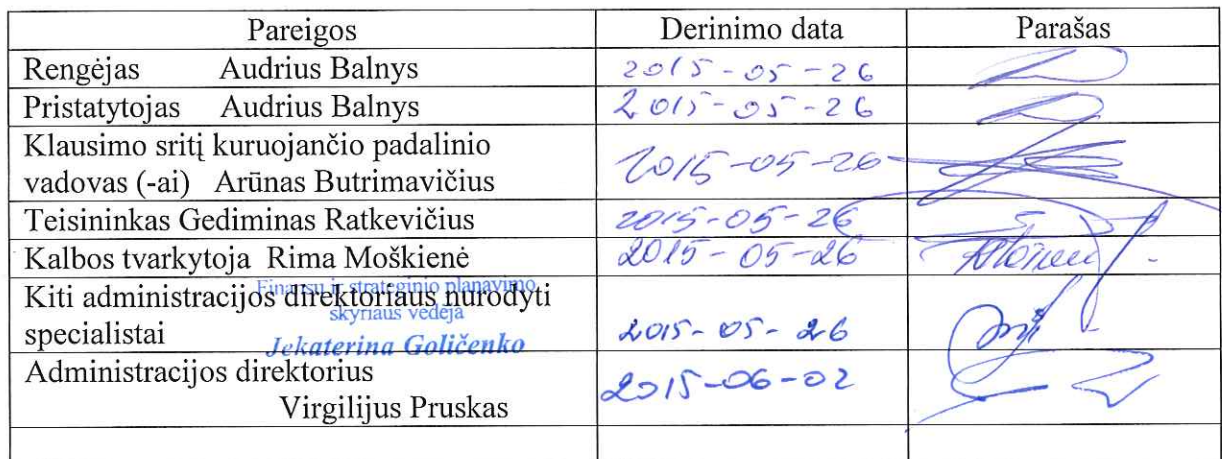 Pareigos Derinimo data Parašas
Rengėjas Audrius Balnys 2015-05-26
Pristatytojas Audrius Balnys 2015-05-26
Klausimo sritį kuruojančio padalinio
vadovas (-ai) Arūnas Butrimavičius 2015-05-26
Teisininkas Gediminas Ratkevičius 2015-05-26
Kalbos tvarkytoja Rima Moškienė 2015-05-26
Finansų ir strateginio planavimo
Kiti administracijos direktoriaus nurodyti
skyriaus vedėja
specialistai 2015-05-26
Jekaterina Goličenko
Administracijos direktorius
Virgilijus Pruskas 2015-06-02